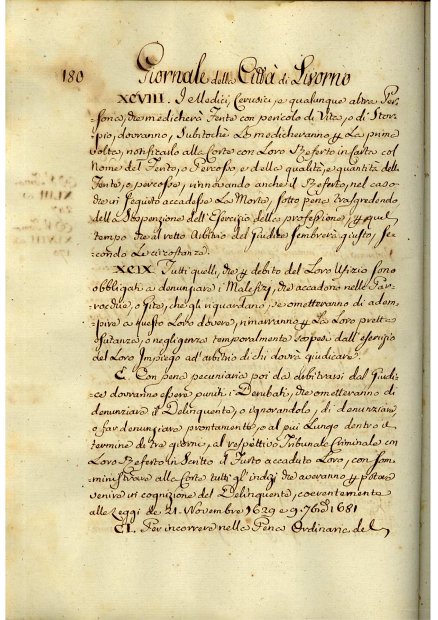 180 Giornale della Città di Livorno
XCVIII. I Medici, Cerusici, e qualunque altra Per-
sona, che medicherà Ferite con pericolo di Vita, o di Stor-
pio, dovranno, Subitochè Le medicheranno p La prima
volta, notificarlo alla Corte con Loro Referto in Carta col
Nome del Ferito, o Percosso, e della qualità, e quantità delle
Ferite, o percosse, rinnovando anche il Referto, nel caso
che in seguito accadesse La Morte, sotto pena trasgredendo
della Sospensione dell'Esercizio della professione, p quel
tempo che al retto Arbitrio del Giudice sembrerà giusto, se-
condo Le circostanze.
XCIX. Tutti quelli, che p debito del Loro Ufizio sono
obbligati a denunziare i Malefizj, che accadono nelle Par-
rocchie, o siti, che gli riguardano, se ometteranno di adem-
pire a questo Loro dovere, rimarranno p La Loro
o negligenza temporalmente sospesi dall'esercizio
del Loro Impiego ad arbitrio di chi dovrà giudicare.
C. Con pena pecuniaria poi da arbitrarsi dal Giudi-
ce dovranno essere puniti i Derubati, che ometteranno di
denunziare il Delinquente, o ignorandolo, di denunziare,
o far denunziare prontamente, o al più Lungo dentro il
termine di tre giorni, al respettivo Tribunale Criminale con
Loro Referto in Scritto il Furto accaduto Loro, con som-
ministrare alla Corte tutti gl'indizj che averanno p potere
venire in cognizione del Delinquente, coerentemente
alle Leggi de 21. Novembre 1629 e 9. 1681
CI. Per incorrere nella Pena Ordinaria del